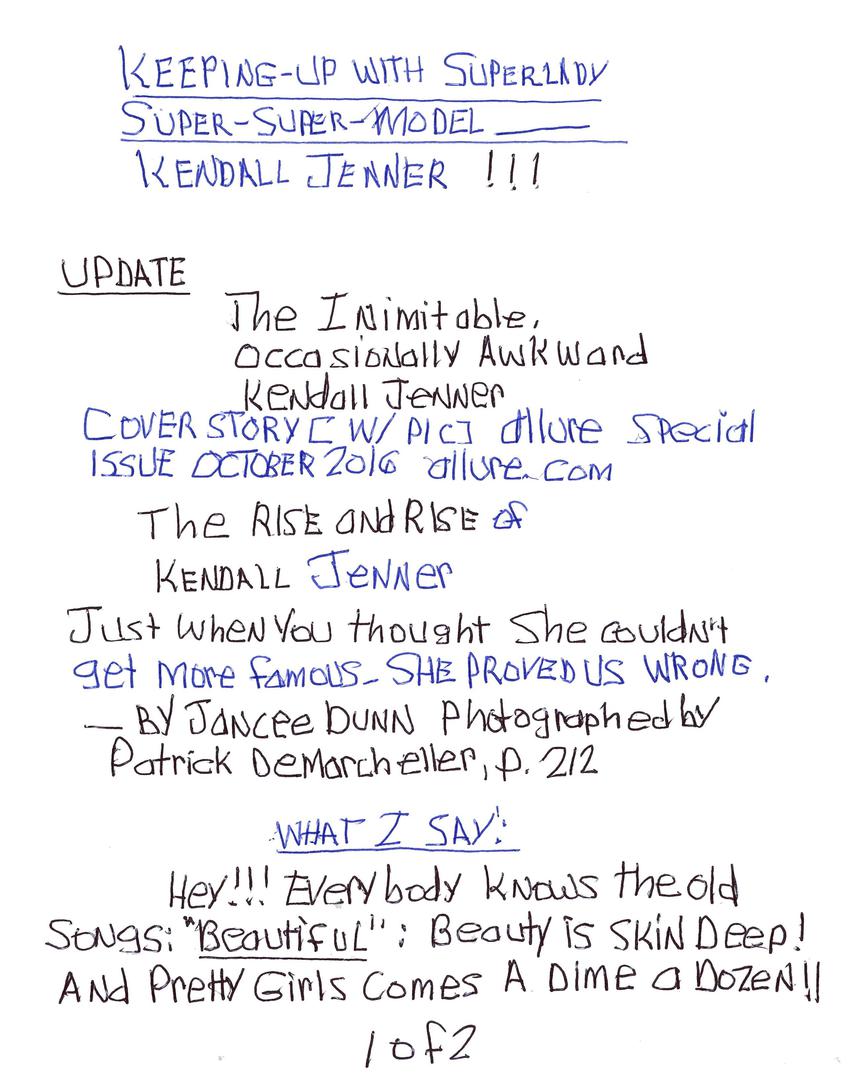 KEEPING-UP WITH SUPERLADY
SUPER-SUPER-MODEL
KENDALL JENNER !!!
UPDATE
The INimitable,
OccasioNally AwkWard
Kendall JENNER
COVER STORY [W/ PIC] allure Special
ISSUE OCTOBER 2016 allure.com
The RISE and RISE of
KENDALL JeNNer
Just WheN You thought She couldN't
get More famous- SHE PROVED US WRONG.
— BY JANCee DUNN Photographed by
Patrick DeMarcheller, p. 212
WHAT I SAY:
Hey!!! Everybody KNows the old
SoNgs: "BeautifuL": Beauty is SKiN Deep!
AND Pretty Girls Comes A Dime a DozeN!!
1 of 2